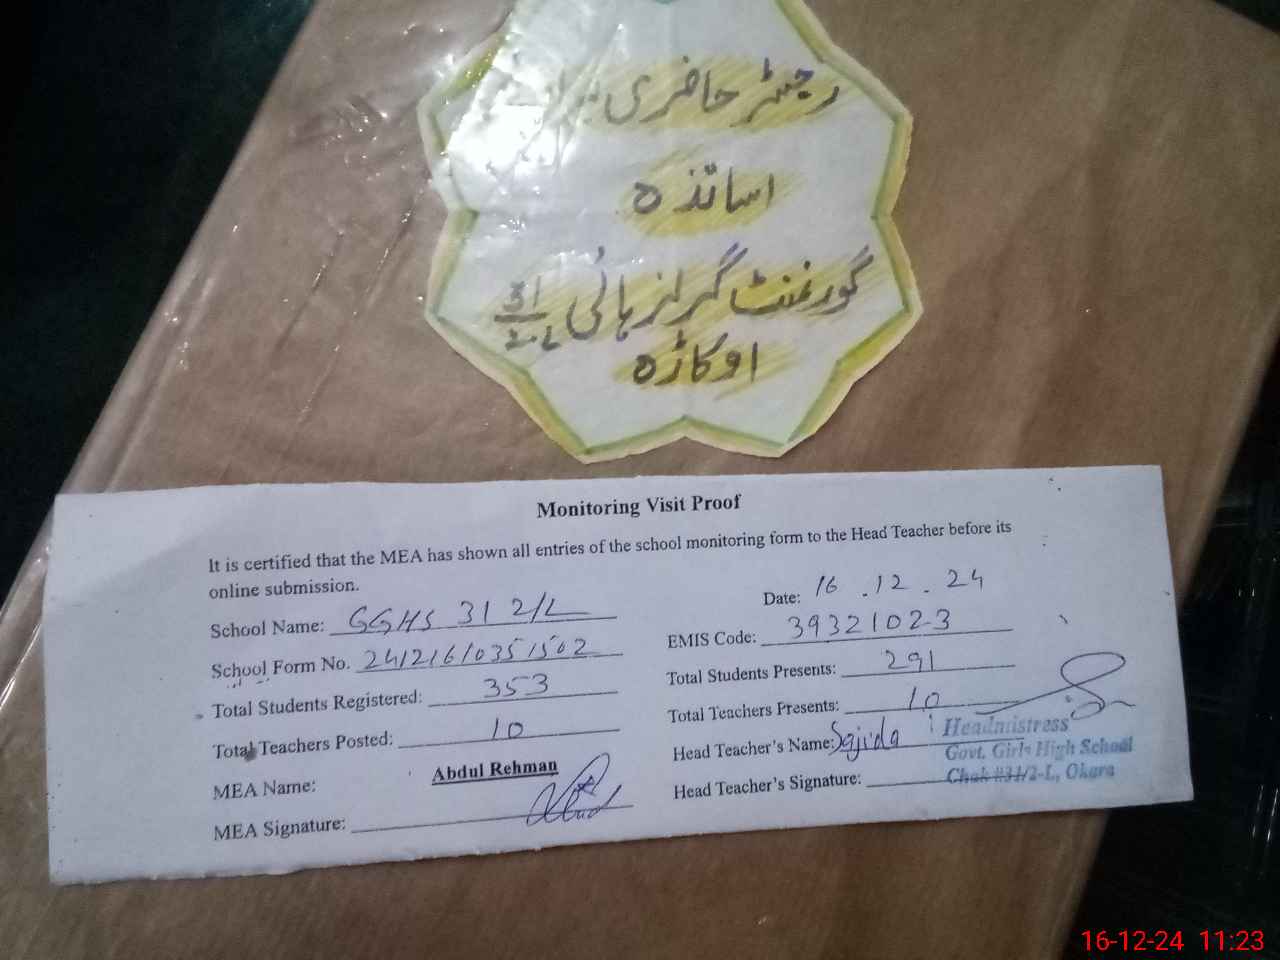 رجسٹر حاضری برائے
اساتذہ
گورنمنٹ گرلز ہائی 31/2-L
اوکاڑہ
Monitoring Visit Proof
It is certified that the MEA has shown all entries of the school monitoring form to the Head Teacher before its
online submission.
Date: 16.12.24
School Name: GGHS 31 2/L
EMIS Code: 39321023
School Form No. 24121610351502
Total Students Presents: 291
Total Students Registered: 353
Total Teachers Presents: 10
Total Teachers Posted: 10
Head Teacher's Name: Sajida
Headmistress
Govt. Girls High School
Chak #31/2-L, Okara
MEA Name: Abdul Rehman
Head Teacher's Signature:
MEA Signature:
16-12-24 11:23